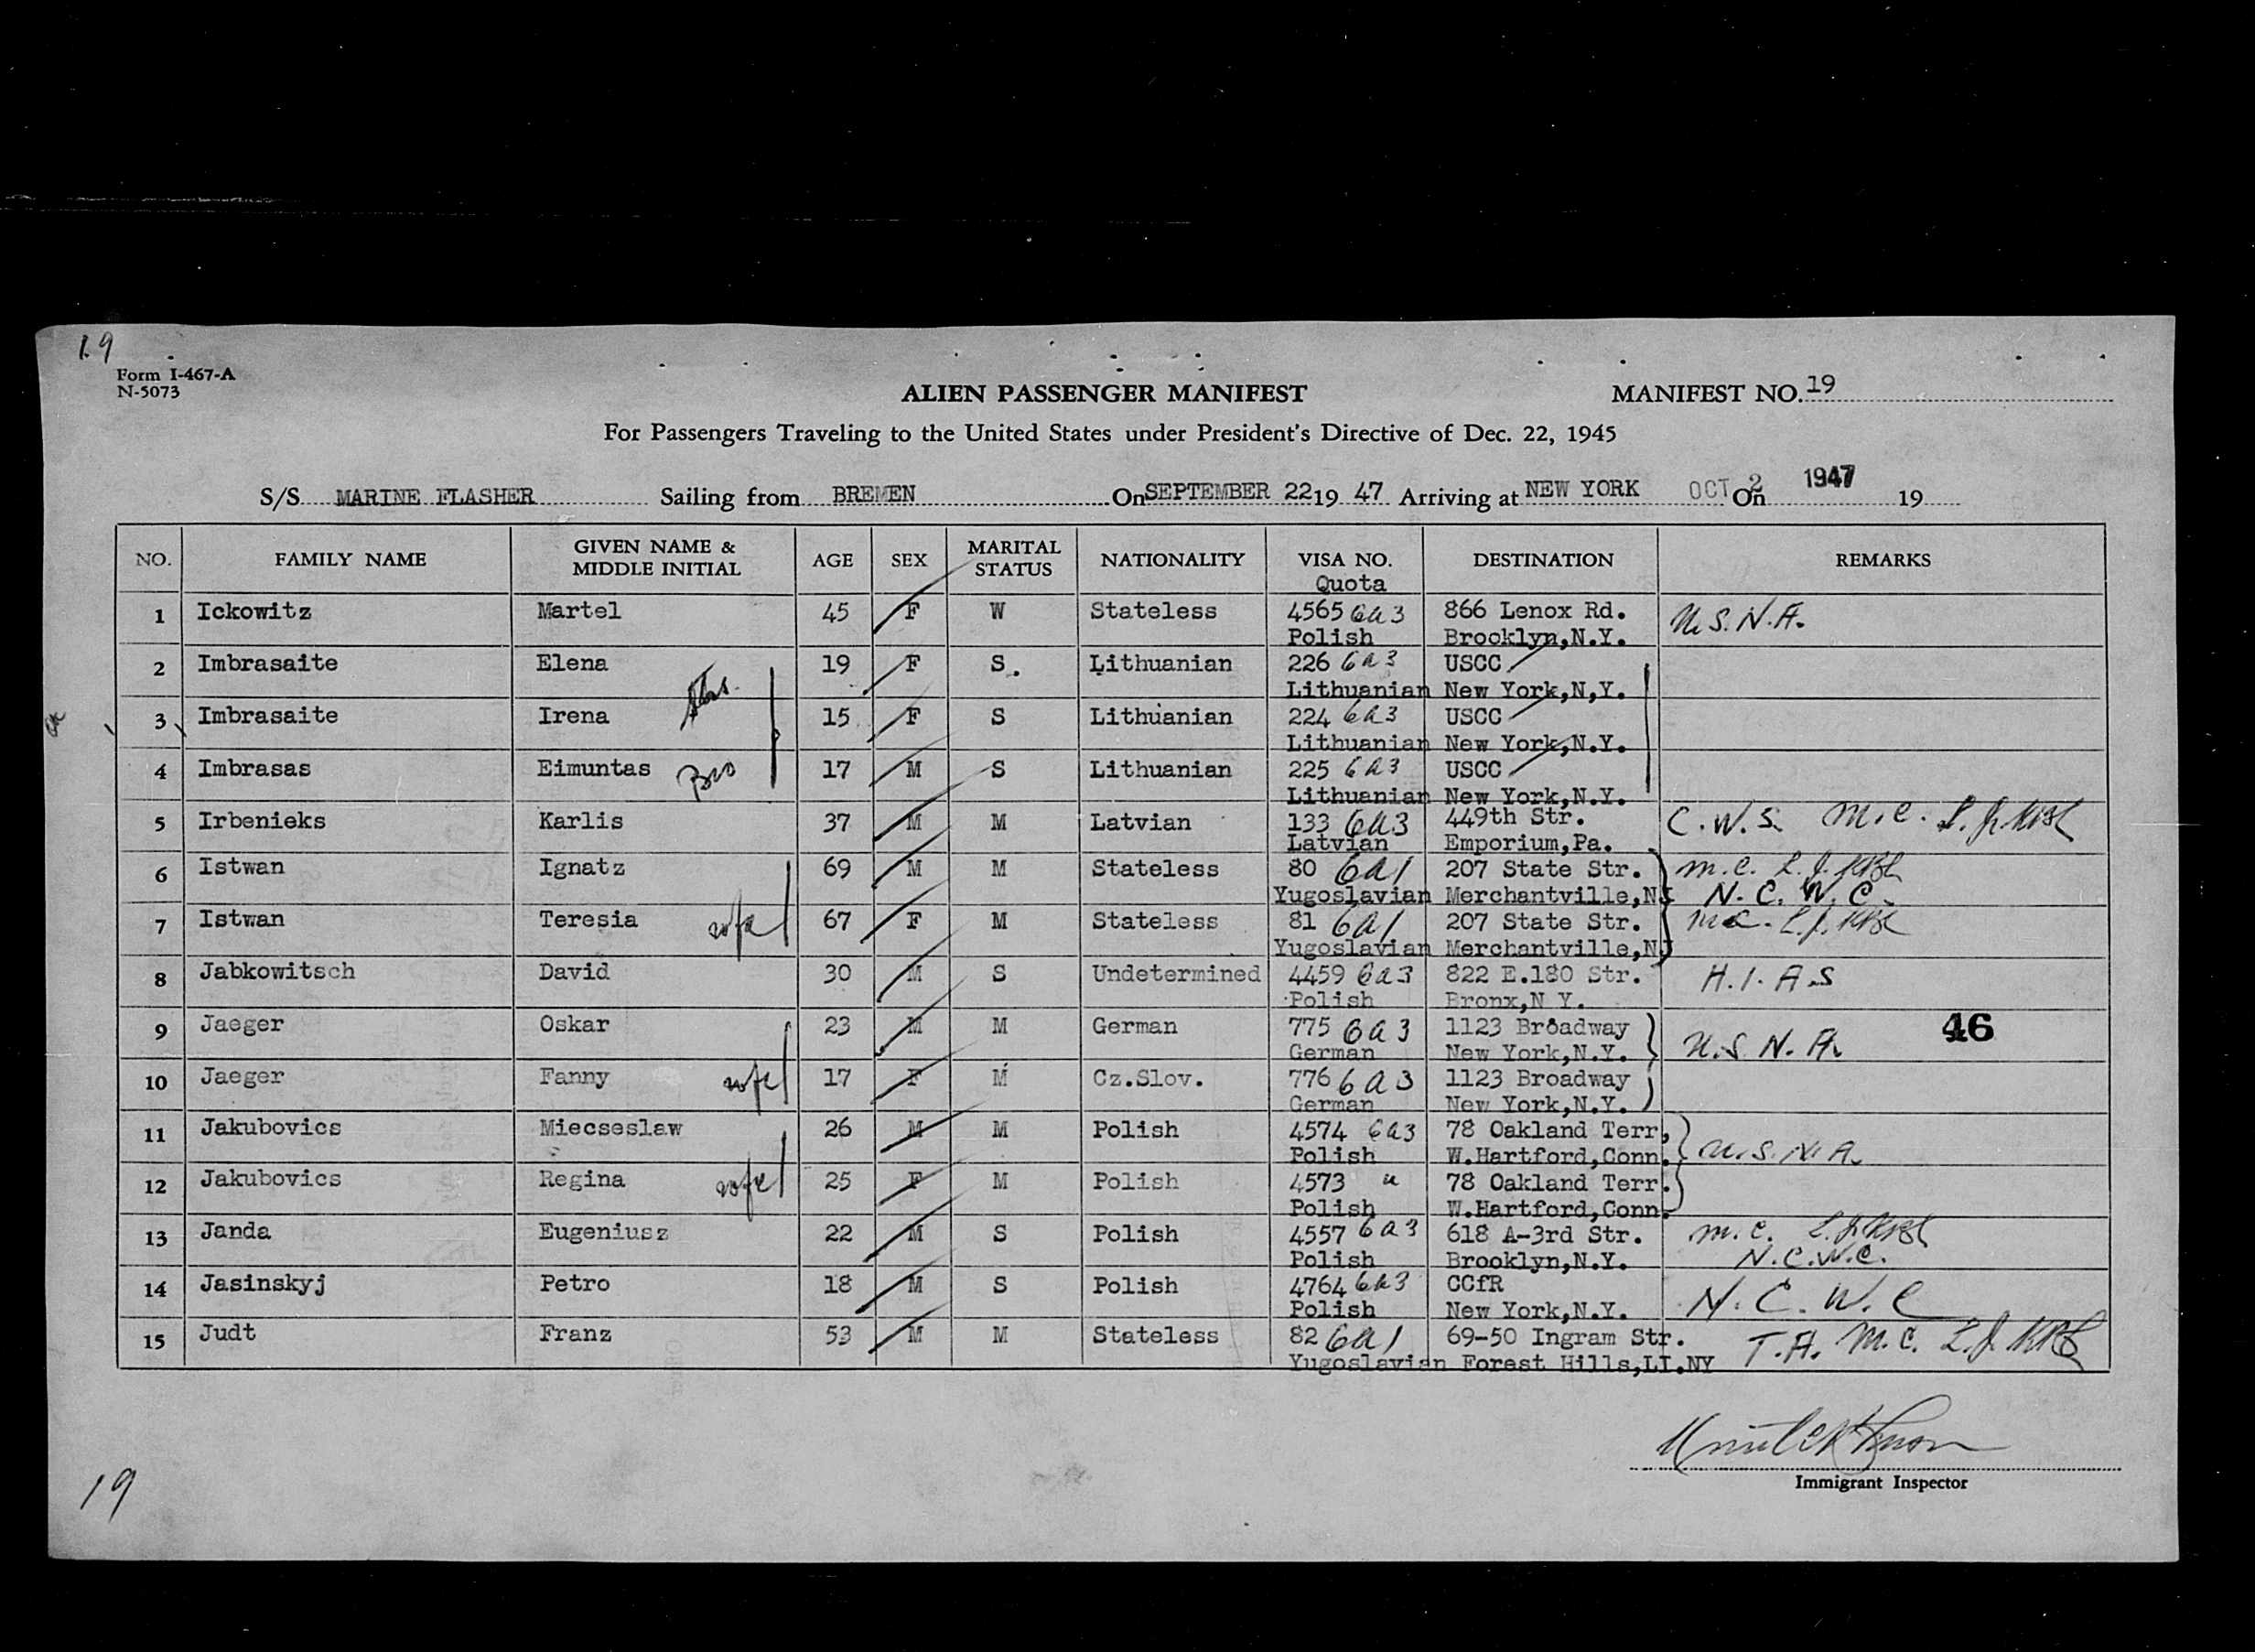 19
Form I-467-A
N-5073
ALIEN PASSENGER MANIFEST
MANIFEST NO. 19
For Passengers Traveling to the United States under President's Directive of Dec. 22, 1945
S/S MARINE FLASHER Sailing from BREMEN On SEPTEMBER 22 19 47 Arriving at NEW YORK OCT 2 On 1947 19
NO. FAMILY NAME GIVEN NAME & MIDDLE INITIAL AGE SEX MARITAL STATUS NATIONALITY VISA NO. Quota DESTINATION REMARKS
1 Ickowitz Martel 45 F W Stateless 4565 6a3 866 Lenox Rd. U.S.N.A.
Polish Brooklyn,N.Y.
2 Imbrasaite Elena 19 F S. Lithuanian 226 6a3 USCC
Lithuanian New York,N,Y.
3 Imbrasaite Irena 15 F S Lithuanian 224 6a3 USCC
Lithuanian New York,N.Y.
4 Imbrasas Eimuntas Bro 17 M S Lithuanian 225 6a3 USCC
Lithuanian New York,N.Y.
5 Irbenieks Karlis 37 M M Latvian 133 6a3 449th Str. C.W.S. M.C.
Latvian Emporium,Pa.
6 Istwan Ignatz 69 M M Stateless 80 6a1 207 State Str. M.C.
Yugoslavian Merchantville,NJ N.C.W.C.
7 Istwan Teresia wife 67 F M Stateless 81 6a1 207 State Str. M.C.
Yugoslavian Merchantville,NJ
8 Jabkowitsch David 30 M S Undetermined 4459 6a3 822 E.180 Str. H.I.A.S
Polish Bronx,N Y.
9 Jaeger Oskar 23 M M German 775 6a3 1123 Broadway U.S.N.A. 46
German New York,N.Y.
10 Jaeger Fanny wife 17 F M Cz.Slov. 776 6a3 1123 Broadway
German New York,N.Y.
11 Jakubovics Miecseslaw 26 M M Polish 4574 6a3 78 Oakland Terr, U.S.N.A.
Polish W.Hartford,Conn.
12 Jakubovics Regina wife 25 F M Polish 4573 " 78 Oakland Terr.
Polish W.Hartford,Conn.
13 Janda Eugeniusz 22 M S Polish 4557 6a3 618 A-3rd Str. M.C.
Polish Brooklyn,N.Y. N.C.W.C.
14 Jasinskyj Petro 18 M S Polish 4764 6a3 CCfR N.C.W.C
Polish New York,N.Y.
15 Judt Franz 53 M M Stateless 82 6a1 69-50 Ingram Str. T.A. M.C.
Yugoslavian Forest Hills,LI.NY
Immigrant Inspector
19